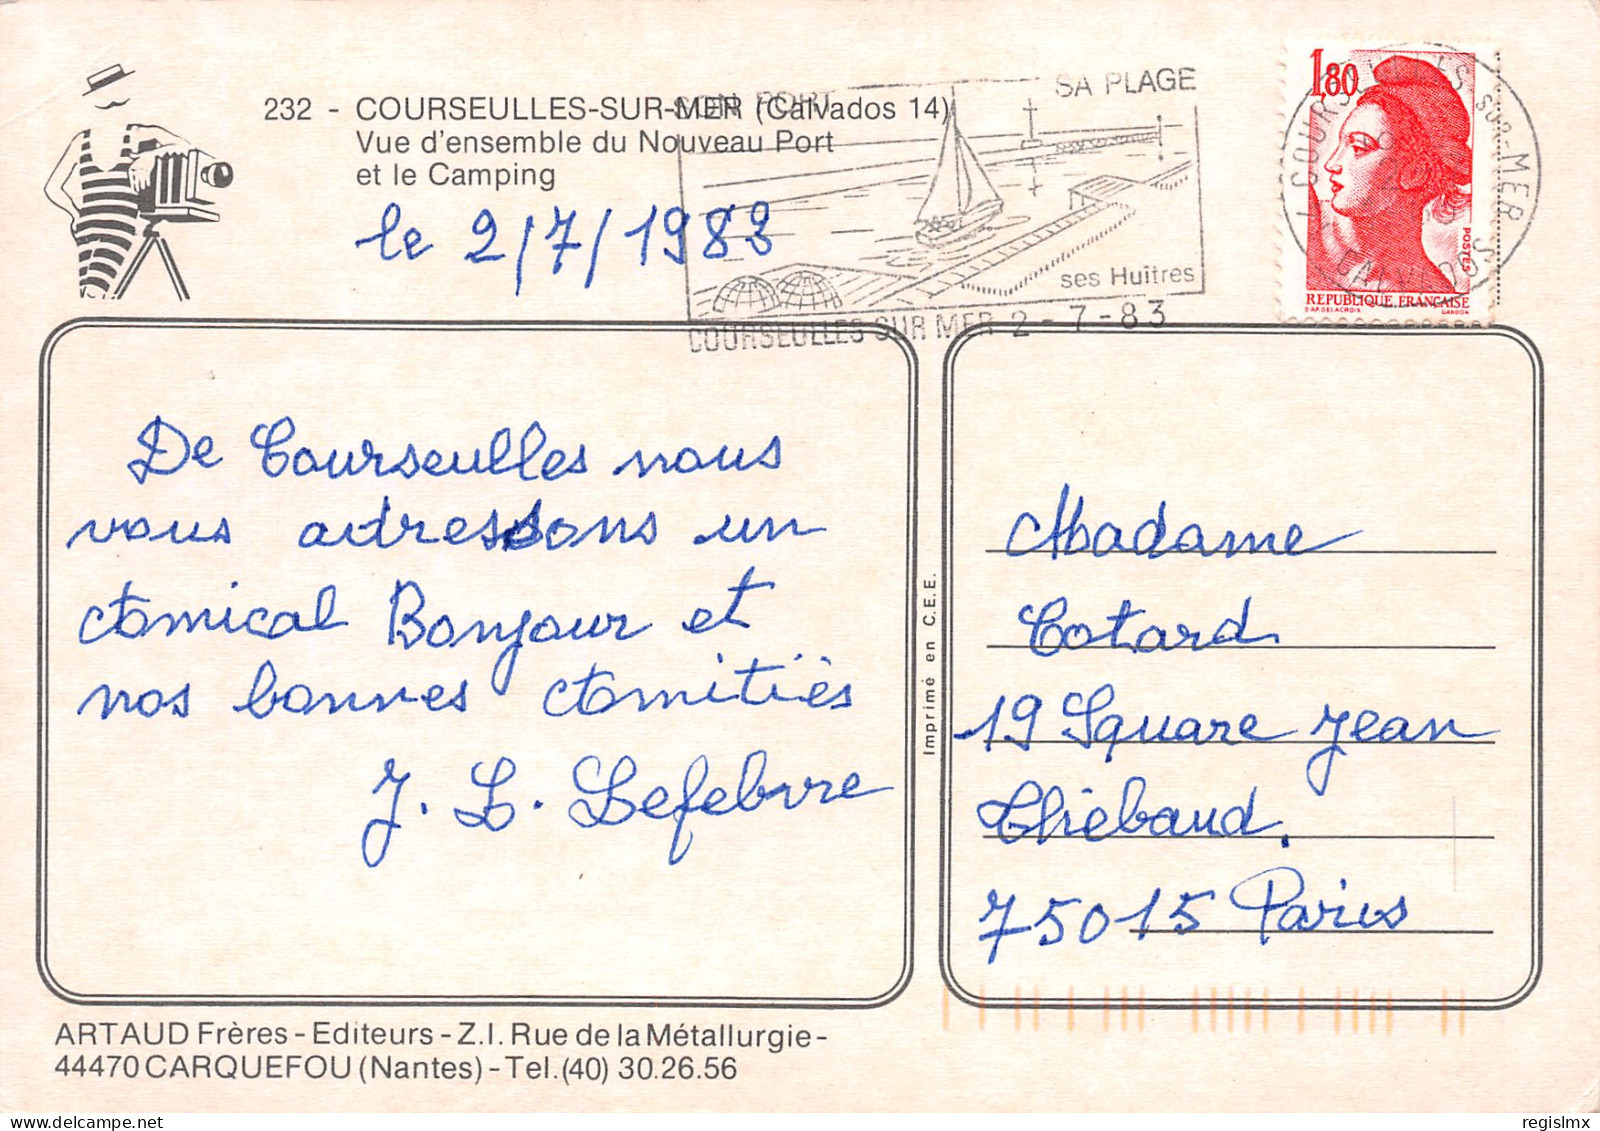 232 - COURSEULLES-SUR-MER (Calvados 14)
Vue d'ensemble du Nouveau Port
et le Camping
le 2/7/1983
SON PORT
SA PLAGE
ses Huîtres
COURSEULLES SUR MER 2-7-83
1,80
POSTES
REPUBLIQUE FRANÇAISE
D'AP. DELACROIX GANDON
COURSEULLES SUR-MER
CALVADOS
De Courseulles nous
vous adressons un
amical Bonjour et
nos bonnes amitiés
J. L. Lefebvre
Imprimé en C.E.E.
Madame
Cotard
19 Square Jean
Thiebaud.
75015 Paris
ARTAUD Frères - Editeurs - Z.I. Rue de la Métallurgie -
44470 CARQUEFOU (Nantes) - Tel. (40) 30.26.56
regislmx